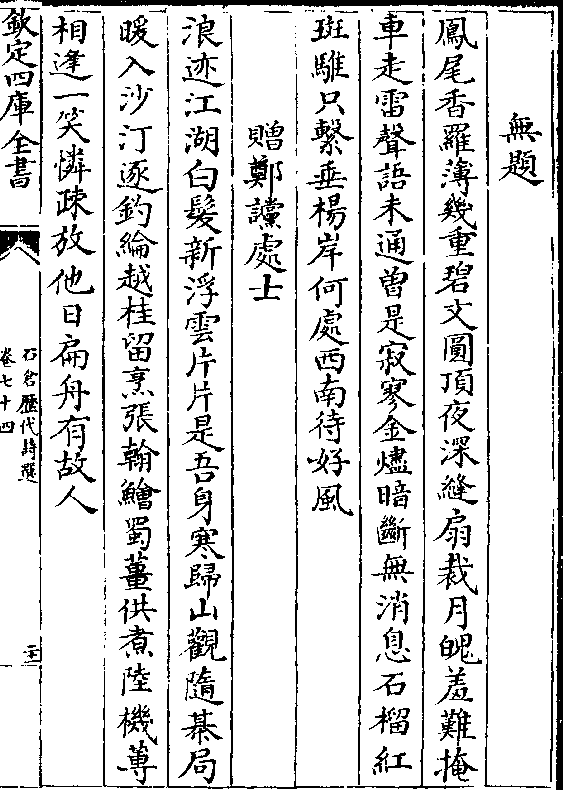 無題
鳳尾香羅薄幾重碧文圓頂夜深縫扇裁月魄羞難掩
車走雷聲語未通曾是寂寥金燼暗斷無消息石榴紅
斑騅只繫垂楊岸何處西南待好風
贈鄭讜處士
浪迹江湖白髮新浮雲片片是吾身寒歸山觀隨棊局
暖入沙汀逐釣綸越桂留烹張翰鱠蜀薑供煮陸機蓴
相逢一笑憐疎放他日扁舟有故人
欽定四庫全書
石倉歷代詩選
卷七十四
二十二